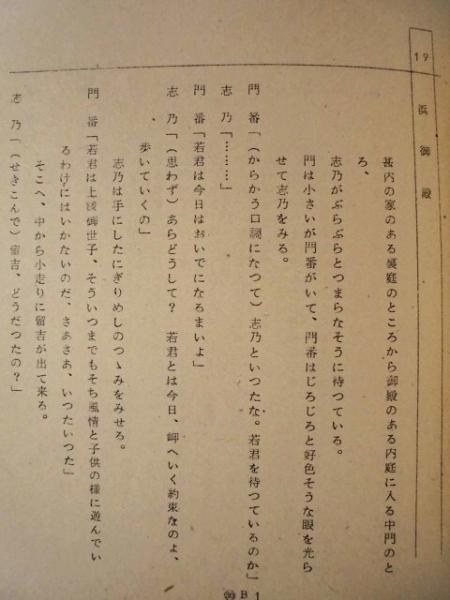 19
浜御殿
甚内の家のある裏庭のところから御殿のある内庭に入る中門のと
ろ、
志乃がぶらぶらとつまらなそうに待つている。
門は小さいが門番がいて、門番はじろじろと好色そうな眼を光ら
せて志乃をみる。
門 番「(からかう口調になつて)志乃といつたな。若君を待つているのか」
志 乃「………」
門 番「若君は今日はおいでになるまいよ」
志 乃「(思わず)あらどうして? 若君とは今日、岬へいく約束なのよ、
歩いていくの」
志乃は手にしたにぎりめしのつゝみをみせる。
門 番「若君は上様御世子、そういつまでもそち風情と子供の様に遊んでい
るわけにはいかないのだ、さあさあ、いつたいつた」
そこへ、中から小走りに留吉が出て来る。
志 乃「(せきこんで)留吉、どうだつたの?」
B 1